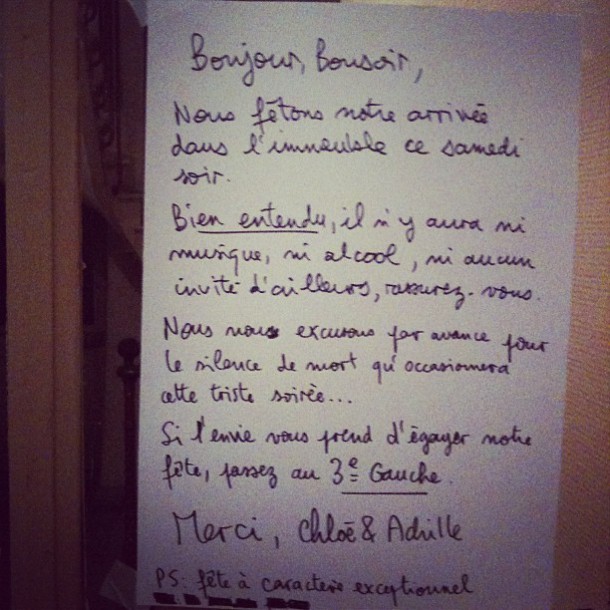 Bonjour, Bonsoir,
Nous fêtons notre arrivée
dans l'immeuble ce samedi
soir.
Bien entendu, il n'y aura ni
musique, ni alcool, ni aucun
invité d'ailleurs, rassurez-vous.
Nous nous excusons par avance pour
le silence de mort qu'occasionnera
cette triste soirée...
Si l'envie vous prend d'égayer notre
fête, passez au 3e Gauche.
Merci, Chloé & Achille
PS: fête à caractère exceptionnel